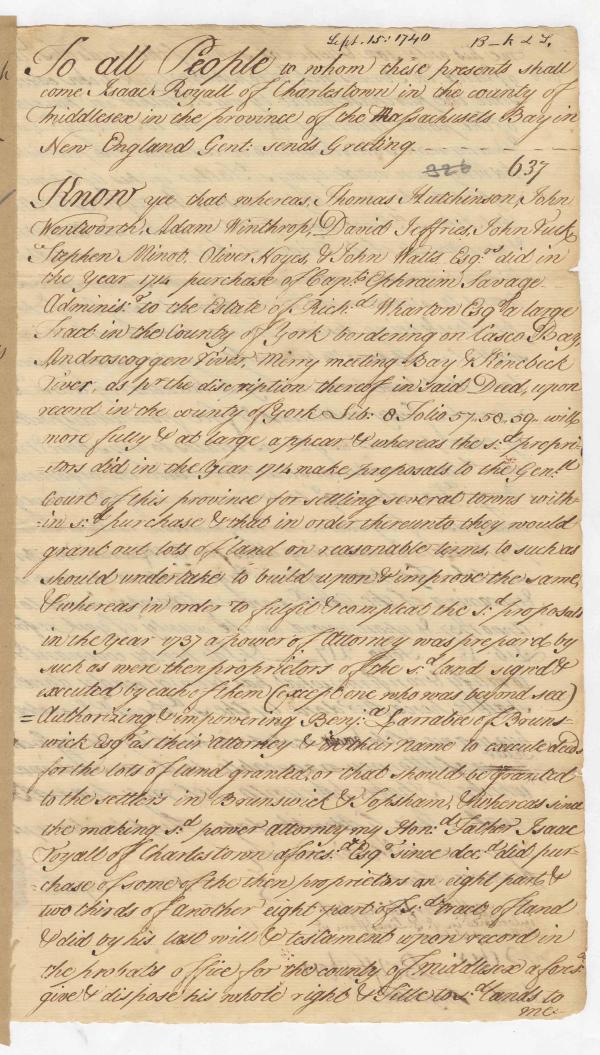 Sept. 15: 1740 B–k & T.
To all People to whom these presents shall
come Isaac Royall of Charlestown in the county of
Middlesex in the province of the Massachusets Bay in
New England Gent: sends Greeting
326 637
Know ye that whereas, Thomas Hutchinson, John
Wentworth, Adam Winthrop, David Jeffries, John Ruck
Stephen Minot, Oliver Noyes, & John Watts Esq.rs did in
the Year 1714 purchase of Cap.t Ephraim Savage
Adminis.r to the Estate of Rich.d Wharton Esq.r a large
Tract in the County of York bordering on Casco Bay,
Androscoggen River, Merry meeting Bay & Kenebeck
River, as p.r the discription thereof in said Deed, upon
record in the county of York Lib: 8 Folio 57. 58. 59. will
more fully & at large appear & whereas the s.d propri=
=etors did in the Year 1714 make proposals to the Gen.ll
Court of this province for settling several towns with=
=in s.d purchase & that in order thereunto they would
grant out lots of land on reasonable terms, to such as
should undertake to build upon & improve the same,
& whereas in order to fulfil & compleat the s.d proposals
in the year 1737 a power of Attorney was prepard by
such as were then proprietors of the s.d land signd &
executed by each of them (except one who was beyond sea)
= Authorizing & impowering Benj.a Larrabee of Bruns=
wick Esq.r as their attorney & in their name to execute deeds
for the lots of land granted, or that should be granted
to the settlers in Brunswick & Topsham, & whereas since
the making s.d power attorney my Hon.d Father Isaac
Royall of Charlestown afores.d Esq.r since dec.d did pur=
=chase of some of the then proprietors an eight part &
two thirds of another eight part of s.d tract of land
& did by his last will & testament upon record in
the probate office for the county of Middlesex afores.d
give & dispose his whole right & Title to s.d lands to
me